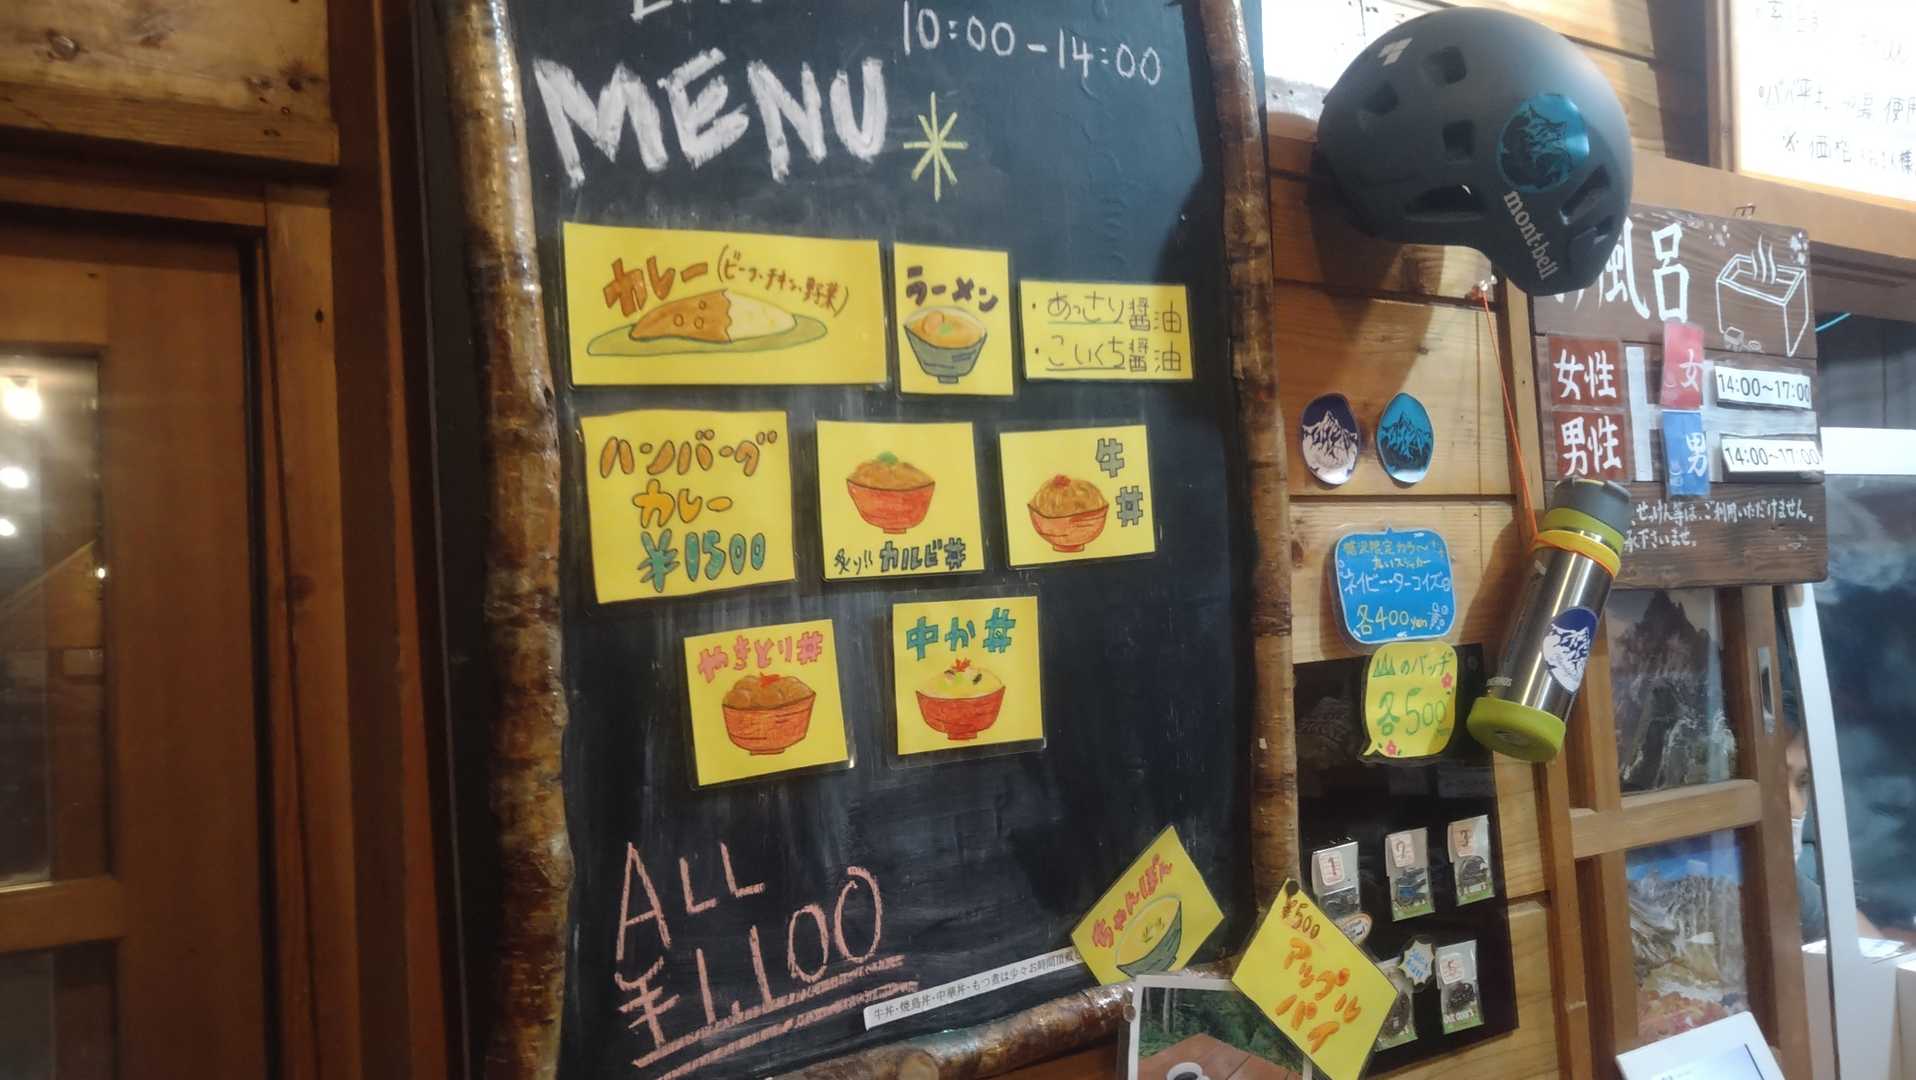 10:00-14:00
MENU
カレー(ビーフ・チキン・野菜)
ラーメン
・あっさり醤油
・こいくち醤油
ハンバーグ
カレー
¥1500
炙り!!カルビ丼
牛丼
やきとり丼
中か丼
ALL
¥1,100
牛丼・焼鳥丼・中華丼・もつ煮は少々お時間頂戴
ちゃんぽん
¥500
アップル
パイ
mont-bell
風呂
女性
女
14:00~17:00
男性
男
14:00~17:00
せっけん等は、ご利用いただけません。
承下さいませ。
限定カラー
丸いステッカー
ネイビー・ターコイズ
各400yen
山のバッヂ
各500
1
2
3
5
使用
※価格